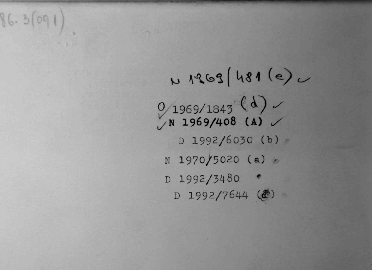 86.3(091)
N 1969/481 (e) ✓
O 1969/1843 (d) ✓
✓ N 1969/408 (A) ✓
D 1992/6030 (b)
N 1970/5020 (a)
D 1992/3480
D 1992/7644 (d)